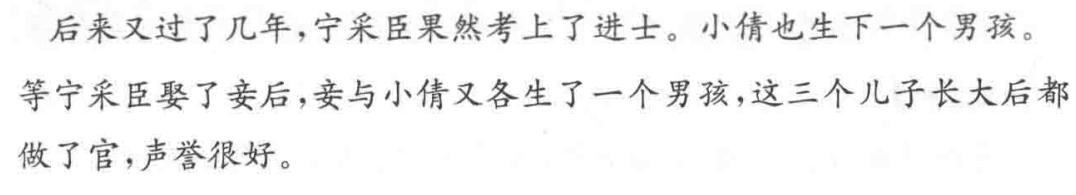 后来又过了几年,宁采臣果然考上了进士。小倩也生下一个男孩。
等宁采臣娶了妾后,妾与小倩又各生了一个男孩,这三个儿子长大后都
做了官,声誉很好。